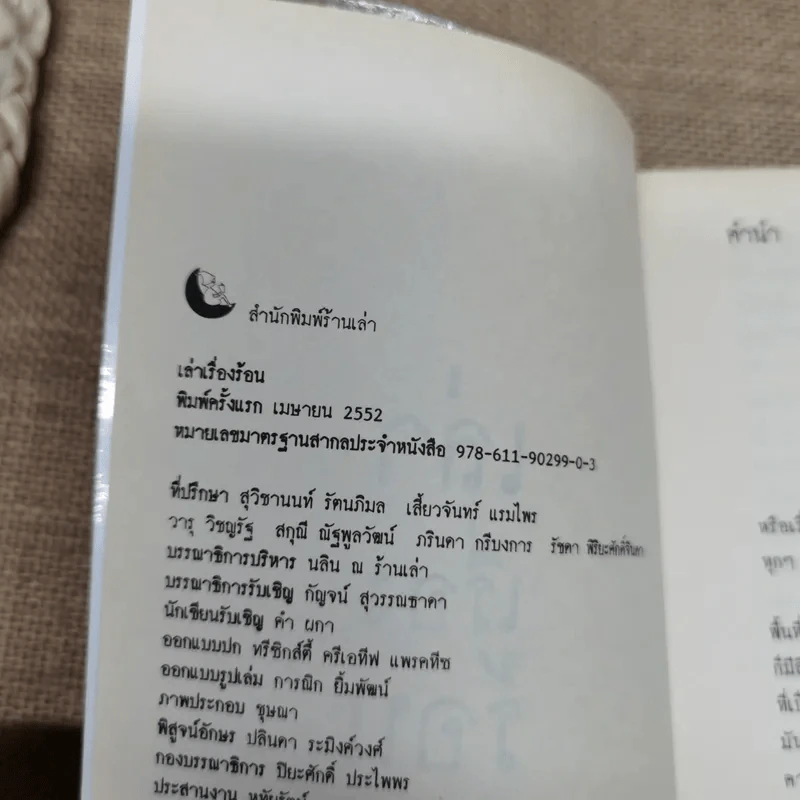 สำนักพิมพ์ร้านเล่า
เล่าเรื่องร้อน
พิมพ์ครั้งแรก เมษายน 2552
หมายเลขมาตรฐานสากลประจำหนังสือ 978-611-90299-0-3
ที่ปรึกษา สุวิชานนท์ รัตนภิมล เสี้ยวจันทร์ แรมไพร
วารุ วิชญรัฐ สกุณี ณัฐพูลวัฒน์ ภรินดา กรีบงการ รัชดา พิริยะศักดิ์จินดา
บรรณาธิการบริหาร นลิน ณ ร้านเล่า
บรรณาธิการรับเชิญ กัญจน์ สุวรรณธาดา
นักเขียนรับเชิญ คำ ผกา
ออกแบบปก ทรีซิกส์ตี้ ครีเอทีฟ แพรคทีซ
ออกแบบรูปเล่ม การณิก ยิ้มพัฒน์
ภาพประกอบ ชุษณา
พิสูจน์อักษร ปลินดา ระมิงค์วงศ์
กองบรรณาธิการ ปิยะศักดิ์ ประไพพร
ประสานงาน หทัยรัตน์
คำนำ
ทุกๆ
พื้นที่
ก็มี
ที่เป็
มัน